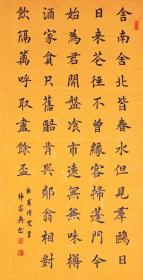 舍南舍北皆春水但見羣鷗日
日來花徑不曾緣客掃蓬門今
始為君開盤飧市遠無兼味樽
酒家貧只舊醅肯與鄰翁相對
飲隔籬呼取盡餘盃
杜甫詩客至